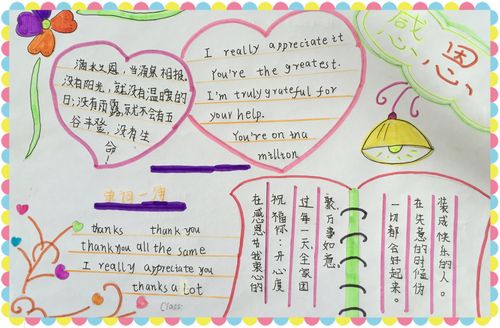 感恩
滴水之恩,当涌泉相报。
没有阳光,就没有温暖的
日;没有雨露,就不会有五
谷丰登,没有生
命!
I really appreciate it
You're the greatest.
I'm truly grateful for
your help.
You're on tna
million
thanks thank you
thank you all the same
I really appreciate you
thanks a lot
Class:
在感恩节我衷心的
祝福你:开心度
过每一天,全家团
聚,万事如意。
一切都会好起来。
在失意的时候伪
装成快乐的人。